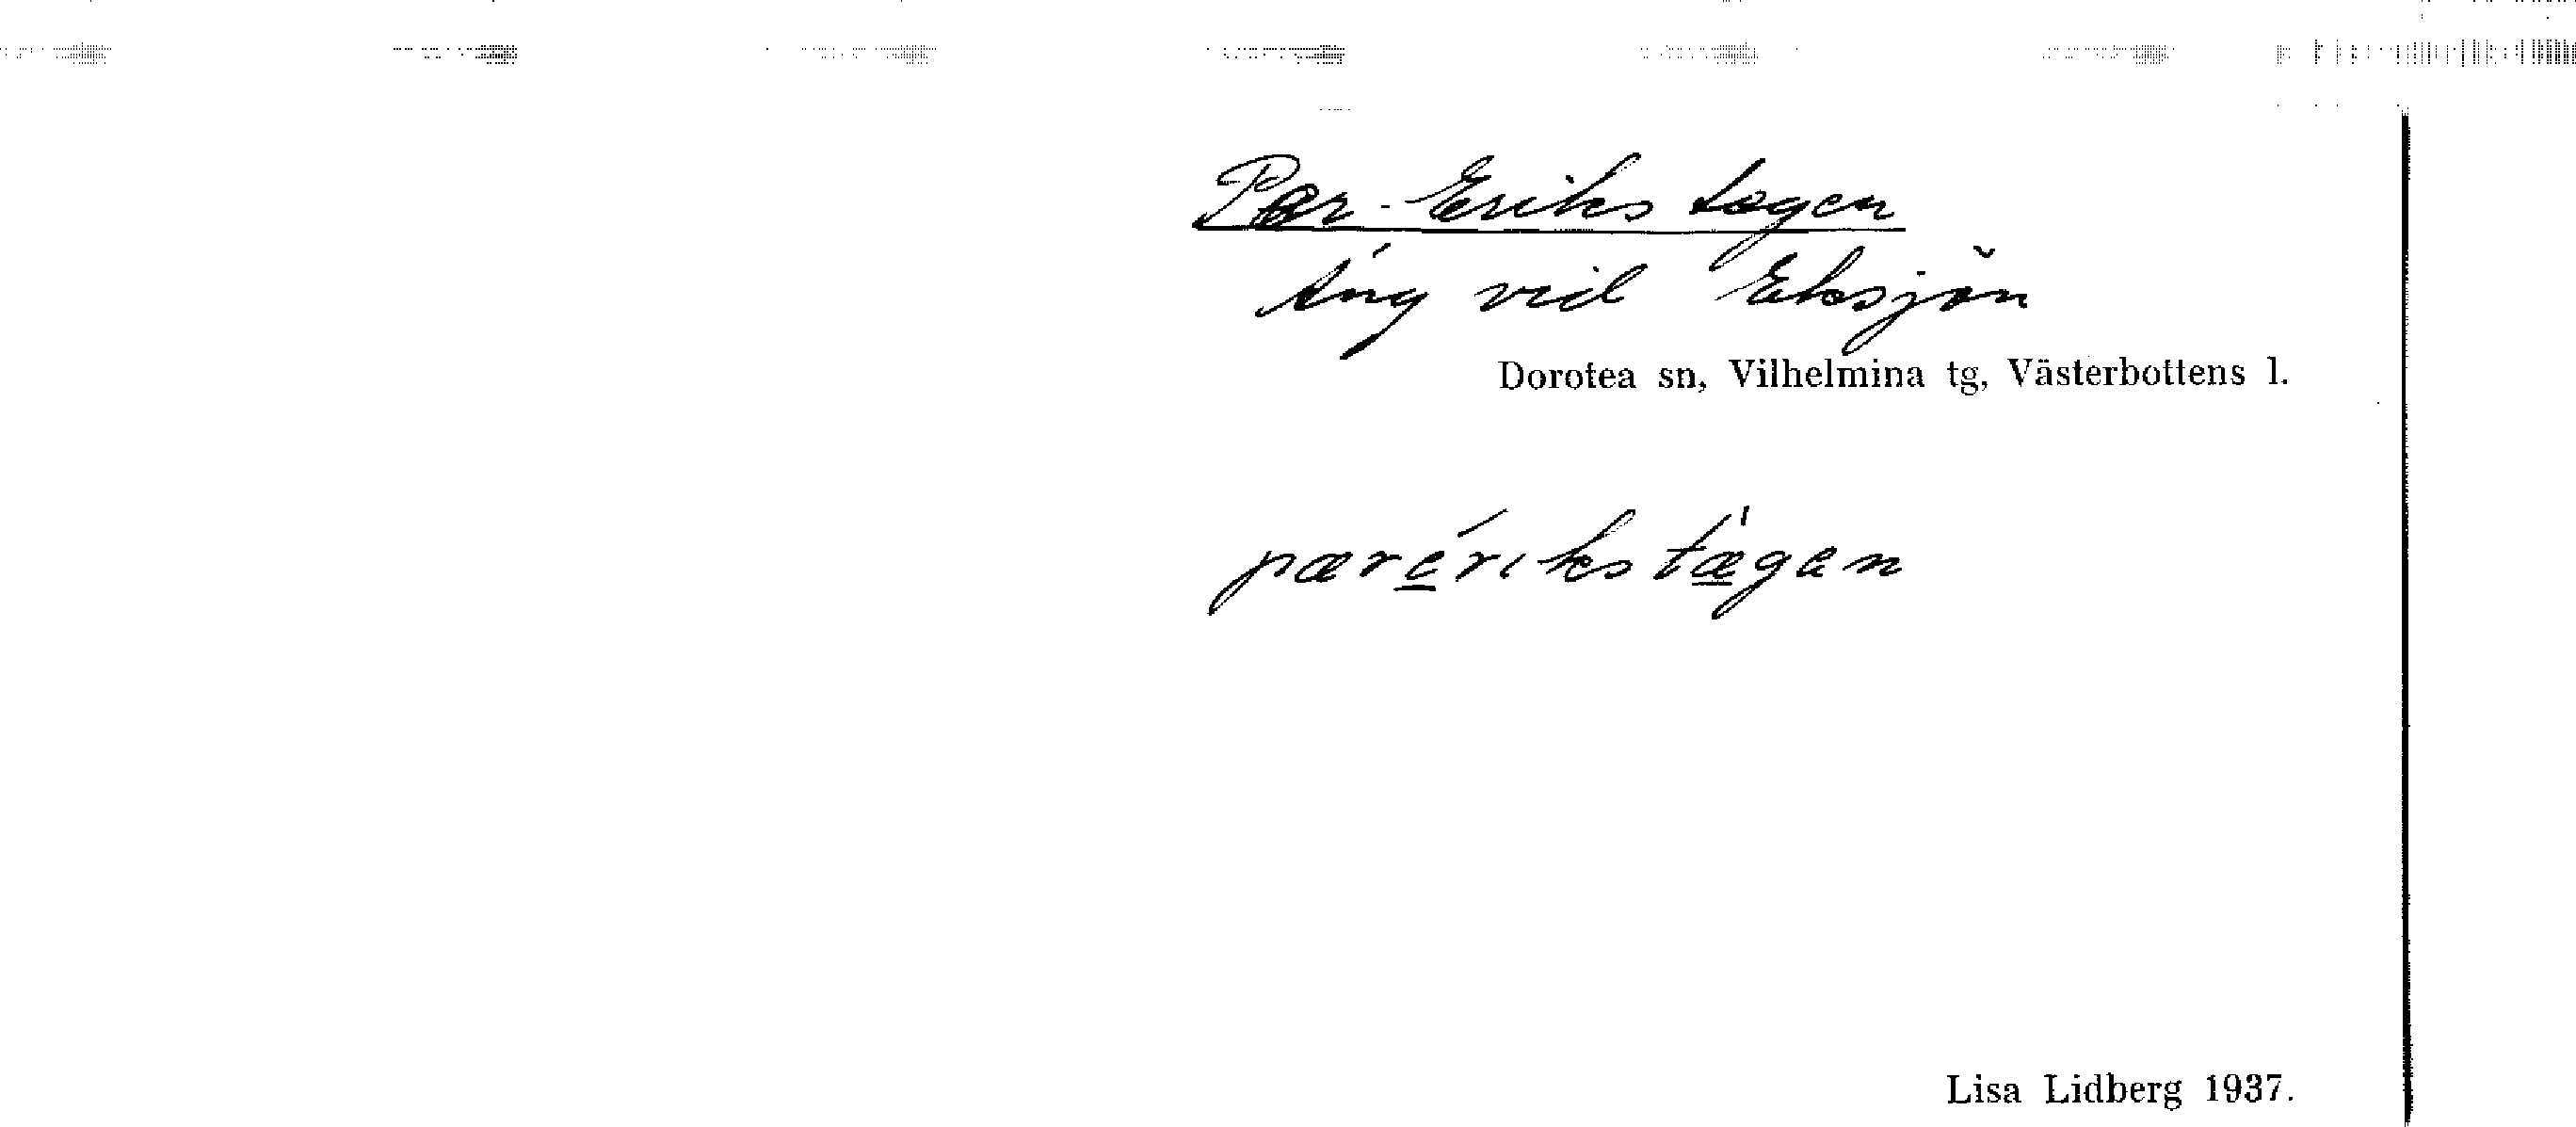 Per-Eriks tægen
Äng vid Eksjön
Dorotea sn, Vilhelmina tg, Västerbottens l.
pæreríkstæ̀gen
Lisa Lidberg 1937.